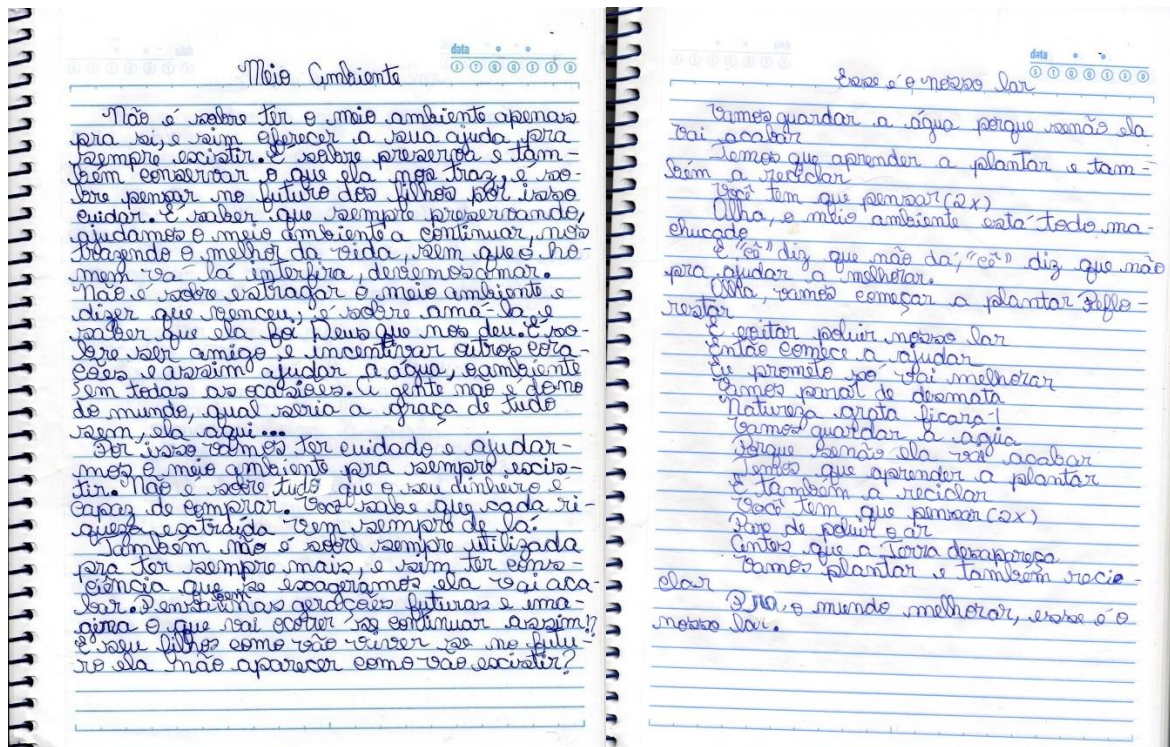 data
S T Q Q S S D
Meio Ambiente
Não é sobre ter o meio ambiente apenas
pra si, e sim oferecer a sua ajuda pra
sempre escistir. É sobre preserva e tam-
bém conservar o que ela nos traz, é so-
bre pensar no futuro dos filhos por isso
cuidar. É saber que sempre preservando,
ajudamos o meio ambiente a continuar, nos
trazendo o melhor da vida, sem que o ho-
mem vá lá interfira, devemos amar.
Não é sobre estragar o meio ambiente e
dizer que venceu, é sobre ama-la, e
saber que ela foi Deus que nos deu. É so-
bre ser amigo e incentivar outros cora-
ções e assim ajudar a água, o ambiente
em todas as ocasiões. A gente não é dono
do mundo, qual seria a graça de tudo
sem, ela aqui...
Por isso vamos ter cuidado e ajudar-
mos o meio ambiente pra sempre escis-
tir. Não é sobre tudo que o seu dinheiro é
capaz de comprar. Você sabe que cada ri-
queza extraída vem sempre de lá.
Também não é sobre sempre utilizada
pra ter sempre mais, e sim ter cons-
ciência que se escagerámos ela vai aca-
bar. Pensa bem nas gerações futuras e ima-
gina o que vai ocorrer se continuar assim!?
E seu filhos como vão viver se no futu-
ro ela não aparecer como vão escistir?
data
S T Q Q S S D
Esse é o nosso lar
Vamos guardar a água porque senão ela
vai acabar
Temos que aprender a plantar e tam-
bém a reciclar
Você tem que pensar (2x)
Olha, o meio ambiente está todo ma-
chucado
E "cê" diz que não dá, "cê" diz que não
pra ajudar a melhorar.
Olha, vamos começar a plantar Reflo-
restar
E evitar poluir nosso lar
Então comece a ajudar
Eu prometo só vai melhorar
Vamos parar de desmata
Natureza grata ficará!
Vamos guardar a água
Porque senão ela vai acabar
Temos que aprender a plantar
E também a reciclar
Você tem que pensar (2x)
Pare de poluir o ar
Antes que a Terra desapareça
Vamos plantar e também reci-
clar
Pra, o mundo melhorar, esse é o
nosso lar.